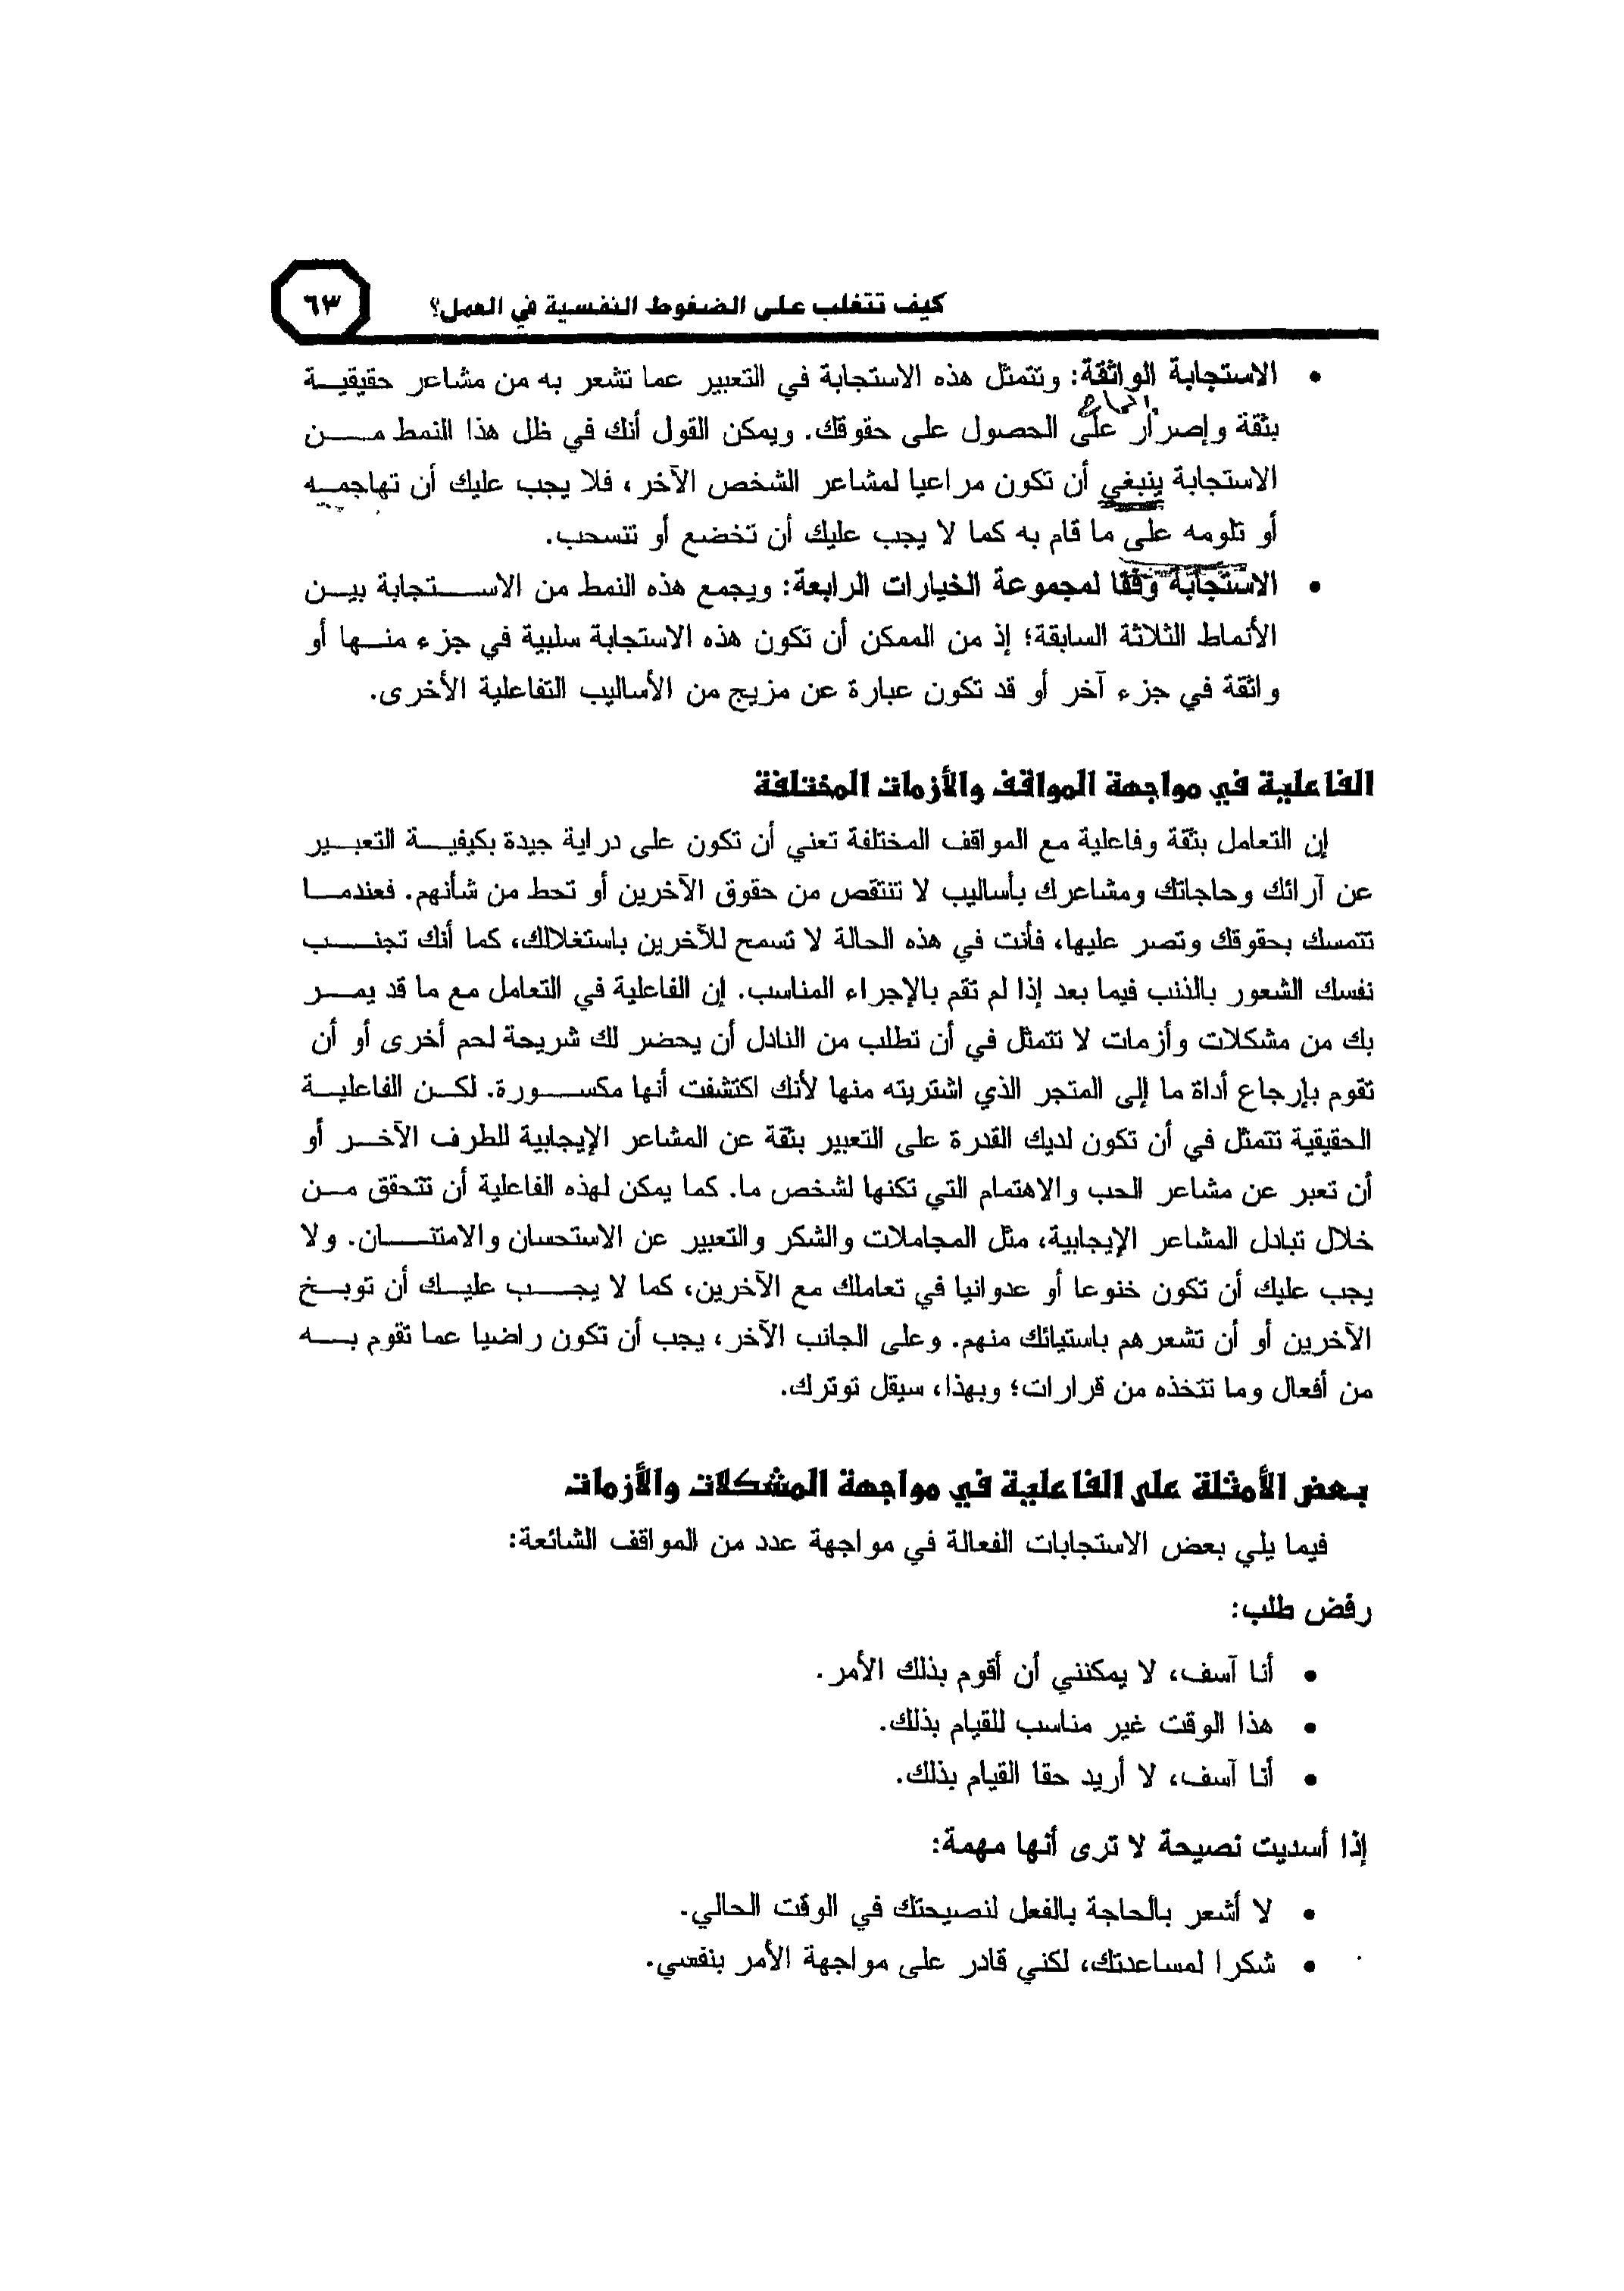 كيف تتغلب على الضغوط النفسية في العمل؟ ٦٣
• الاستجابة الواثقة: وتتمثل هذه الاستجابة في التعبير عما تشعر به من مشاعر حقيقية
بثقة وإصرار على الحصول على حقوقك. ويمكن القول أنك في ظل هذا النمط من
الاستجابة ينبغي أن تكون مراعيا لمشاعر الشخص الآخر، فلا يجب عليك أن تهاجمه
أو تلومه على ما قام به كما لا يجب عليك أن تخضع أو تنسحب.
• الاستجابة وفقا لمجموعة الخيارات الرابعة: ويجمع هذه النمط من الاستجابة بين
الأنماط الثلاثة السابقة؛ إذ من الممكن أن تكون هذه الاستجابة سلبية في جزء منها أو
واثقة في جزء آخر أو قد تكون عبارة عن مزيج من الأساليب التفاعلية الأخرى.
الفاعلية في مواجهة المواقف والأزمات المختلفة
إن التعامل بثقة وفاعلية مع المواقف المختلفة تعني أن تكون على دراية جيدة بكيفية التعبير
عن آرائك وحاجاتك ومشاعرك بأساليب لا تنتقص من حقوق الآخرين أو تحط من شأنهم. فعندما
تتمسك بحقوقك وتصر عليها، فأنت في هذه الحالة لا تسمح للآخرين باستغلالك، كما أنك تجنب
نفسك الشعور بالذنب فيما بعد إذا لم تقم بالإجراء المناسب. إن الفاعلية في التعامل مع ما قد يمر
بك من مشكلات وأزمات لا تتمثل في أن تطلب من النادل أن يحضر لك شريحة لحم أخرى أو أن
تقوم بإرجاع أداة ما إلى المتجر الذي اشتريته منها لأنك اكتشفت أنها مكسورة. لكن الفاعلية
الحقيقية تتمثل في أن تكون لديك القدرة على التعبير بثقة عن المشاعر الإيجابية للطرف الآخر أو
أن تعبر عن مشاعر الحب والاهتمام التي تكنها لشخص ما. كما يمكن لهذه الفاعلية أن تتحقق من
خلال تبادل المشاعر الإيجابية، مثل المجاملات والشكر والتعبير عن الاستحسان والامتنان. ولا
يجب عليك أن تكون خنوعا أو عدوانيا في تعاملك مع الآخرين، كما لا يجب عليك أن توبخ
الآخرين أو أن تشعرهم باستيائك منهم. وعلى الجانب الآخر، يجب أن تكون راضيا عما تقوم به
من أفعال وما تتخذه من قرارات؛ وبهذا، سيقل توترك.
بعض الأمثلة على الفاعلية في مواجهة المشكلات والأزمات
فيما يلي بعض الاستجابات الفعالة في مواجهة عدد من المواقف الشائعة:
رفض طلب:
• أنا آسف، لا يمكنني أن أقوم بذلك الأمر.
• هذا الوقت غير مناسب للقيام بذلك.
• أنا آسف، لا أريد حقا القيام بذلك.
إذا أسديت نصيحة لا ترى أنها مهمة:
• لا أشعر بالحاجة بالفعل لنصيحتك في الوقت الحالي.
• شكرا لمساعدتك، لكني قادر على مواجهة الأمر بنفسي.